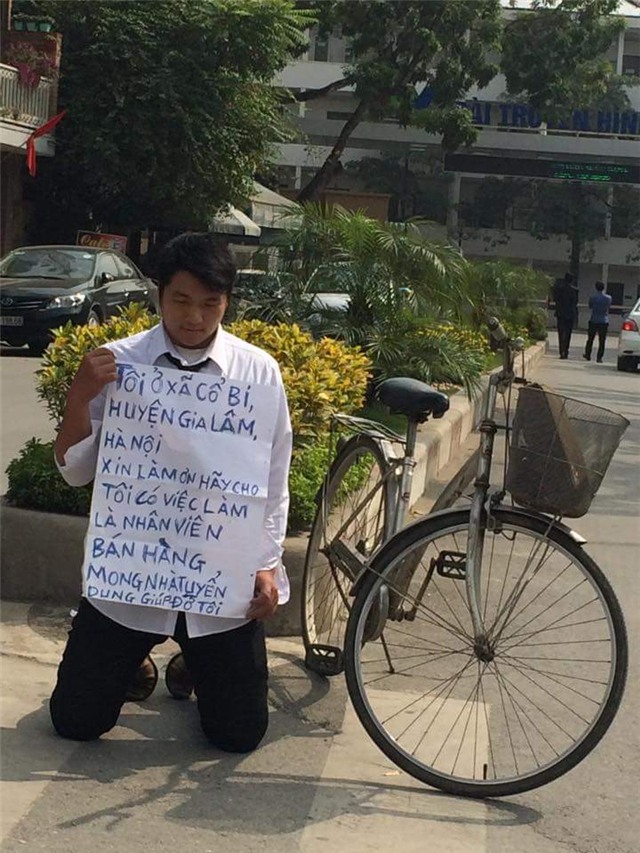 ĐÀI TRUYỀN HÌNH
TÔI Ở XÃ CỔ BI,
HUYỆN GIA LÂM,
HÀ NỘI
XIN LÀM ƠN HÃY CHO
TÔI CÓ VIỆC LÀM
LÀ NHÂN VIÊN
BÁN HÀNG
MONG NHÀ TUYỂN
DỤNG GIÚP ĐỠ TÔI